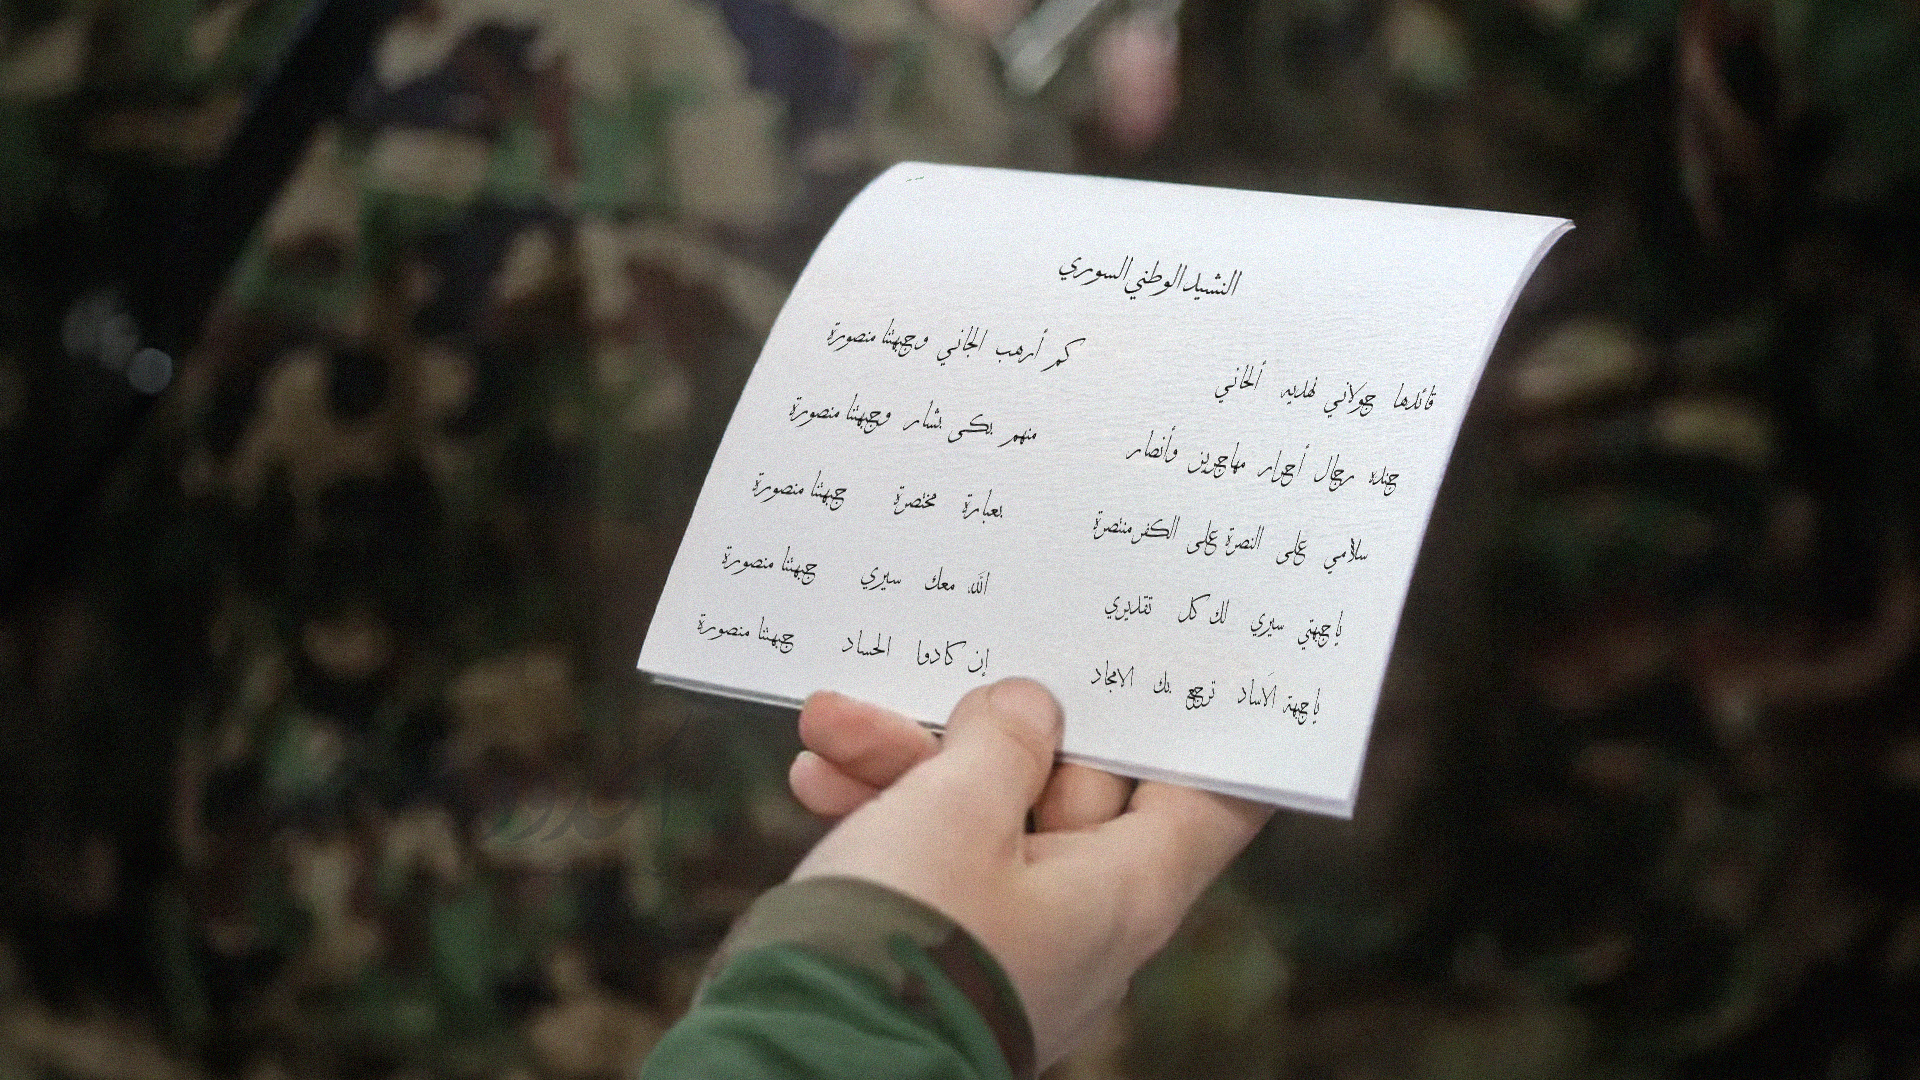 النشيد الوطني السوري
قائدها جولاني نهديه ألحاني كم أرهب الجاني وجبهتنا منصورة
جنده رجال أحرار مهاجرين وأنصار منهم بكى بشار وجبهتنا منصورة
سلامي على النصرة على الكفر منتصرة بعبارة مختصرة جبهتنا منصورة
يا جبهتي سيري لك كل تقديري الله معك سيري جبهتنا منصورة
يا جبهة الآساد ترجع بك الامجاد إن كادوا الحساد جبهتنا منصورة